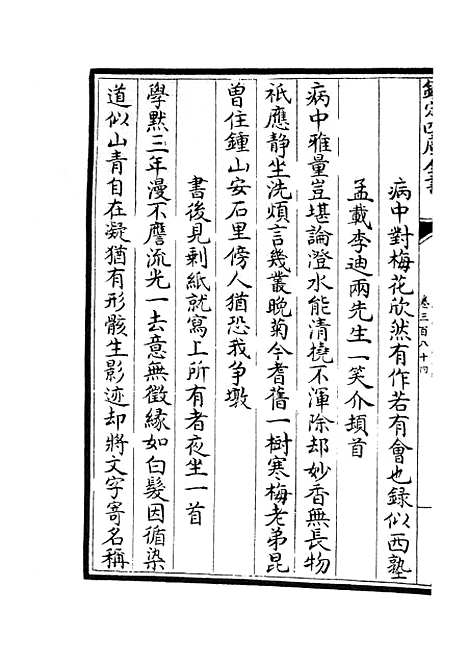 欽定四庫全書
卷三百八十四
病中對梅花欣然有作若有會也録似西塾
孟載李迪兩先生一笑介頓首
病中雅量豈堪論澄水能清撓不渾除却妙香無長物
祇應静坐洗煩言幾叢晚菊今耆舊一樹寒梅老弟昆
曾住鍾山安石里傍人猶恐我争墩
書後見剰紙就寫上所有者夜坐一首
學黙三年漫不譍流光一去意無徵縁如白髮因循染
道似山青自在凝猶有形骸生影迹却將文字寄名稱